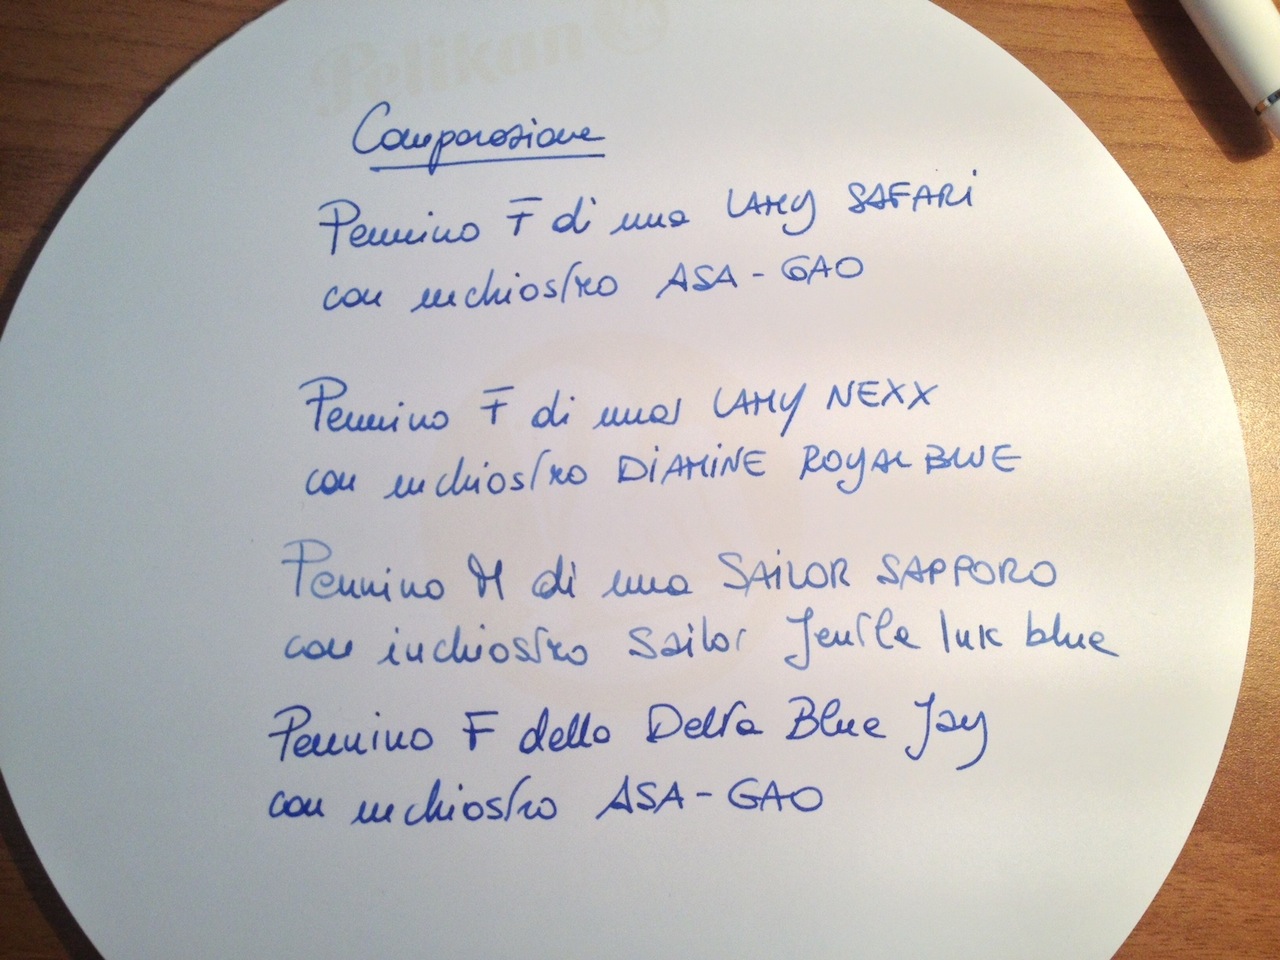 Pelikan
Comparazione
Pennino F di una LAMY SAFARI
con inchiostro ASA-GAO
Pennino F di una LAMY NEXX
con inchiostro DIAMINE ROYAL BLUE
Pennino M di una SAILOR SAPPORO
con inchiostro Sailor Jentle Ink blue
Pennino F dello Delta Blue Jay
con inchiostro ASA-GAO